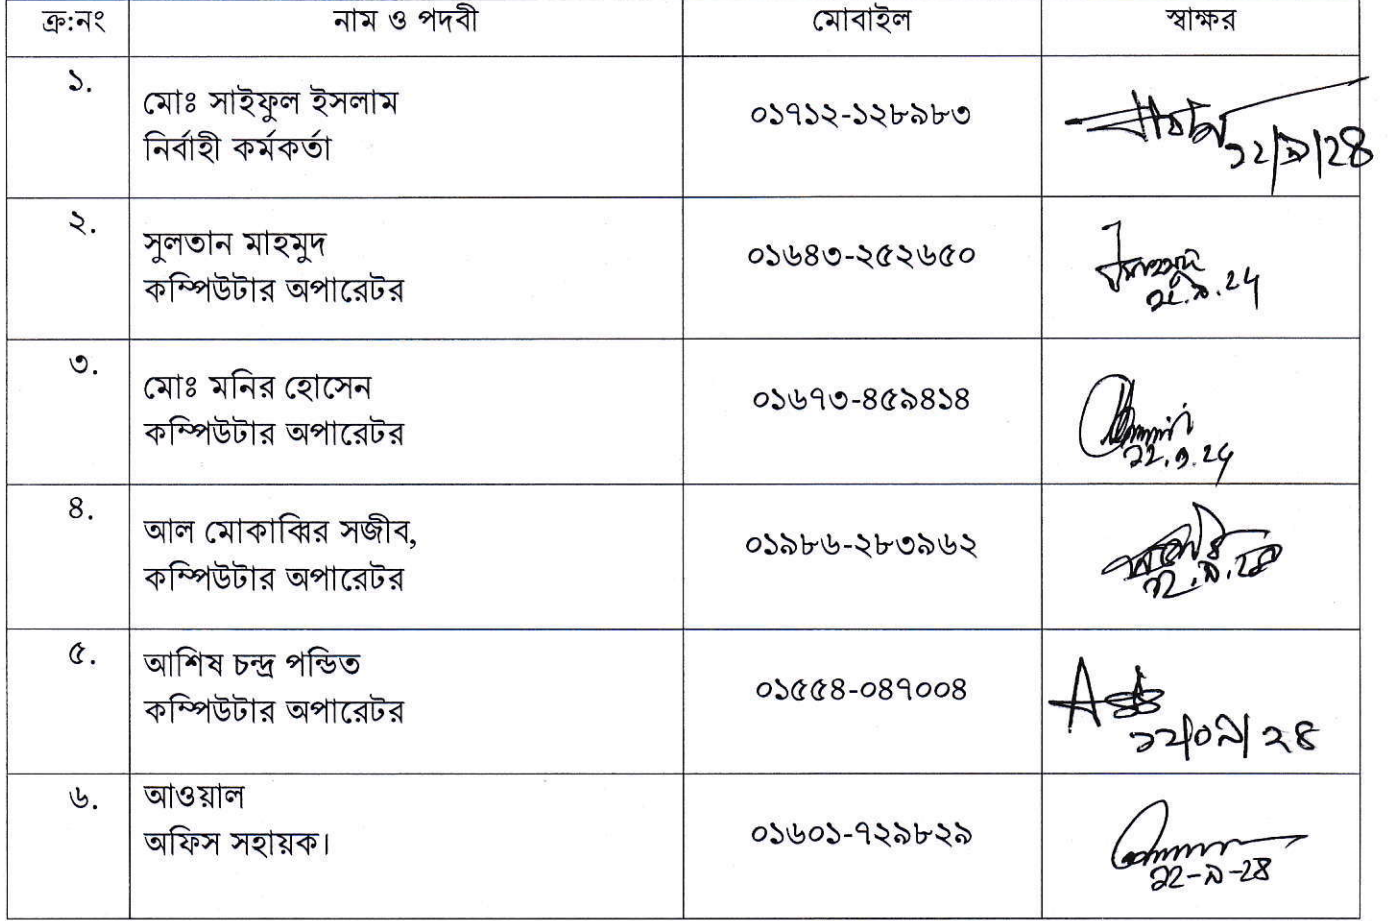 ক্র:নং নাম ও পদবী মোবাইল স্বাক্ষর
১. মোঃ সাইফুল ইসলাম
নির্বাহী কর্মকর্তা
০১৭১২-১২৮৯৮৩
১২/৯/২৪
২. সুলতান মাহমুদ
কম্পিউটার অপারেটর
০১৬৪৩-২৫২৬৫০
৩. মোঃ মনির হোসেন
কম্পিউটার অপারেটর
০১৬৭৩-৪৫৯৪১৪
৪. আল মোকাব্বির সজীব,
কম্পিউটার অপারেটর
০১৯৮৬-২৮৩৯৬২
১২.৯.২৪
৫. আশিষ চন্দ্র পন্ডিত
কম্পিউটার অপারেটর
০১৫৫৪-০৪৭০০৪
১২/০৯/২৪
৬. আওয়াল
অফিস সহায়ক।
০১৬০১-৭২৯৮২৯
১২-৯-২৪